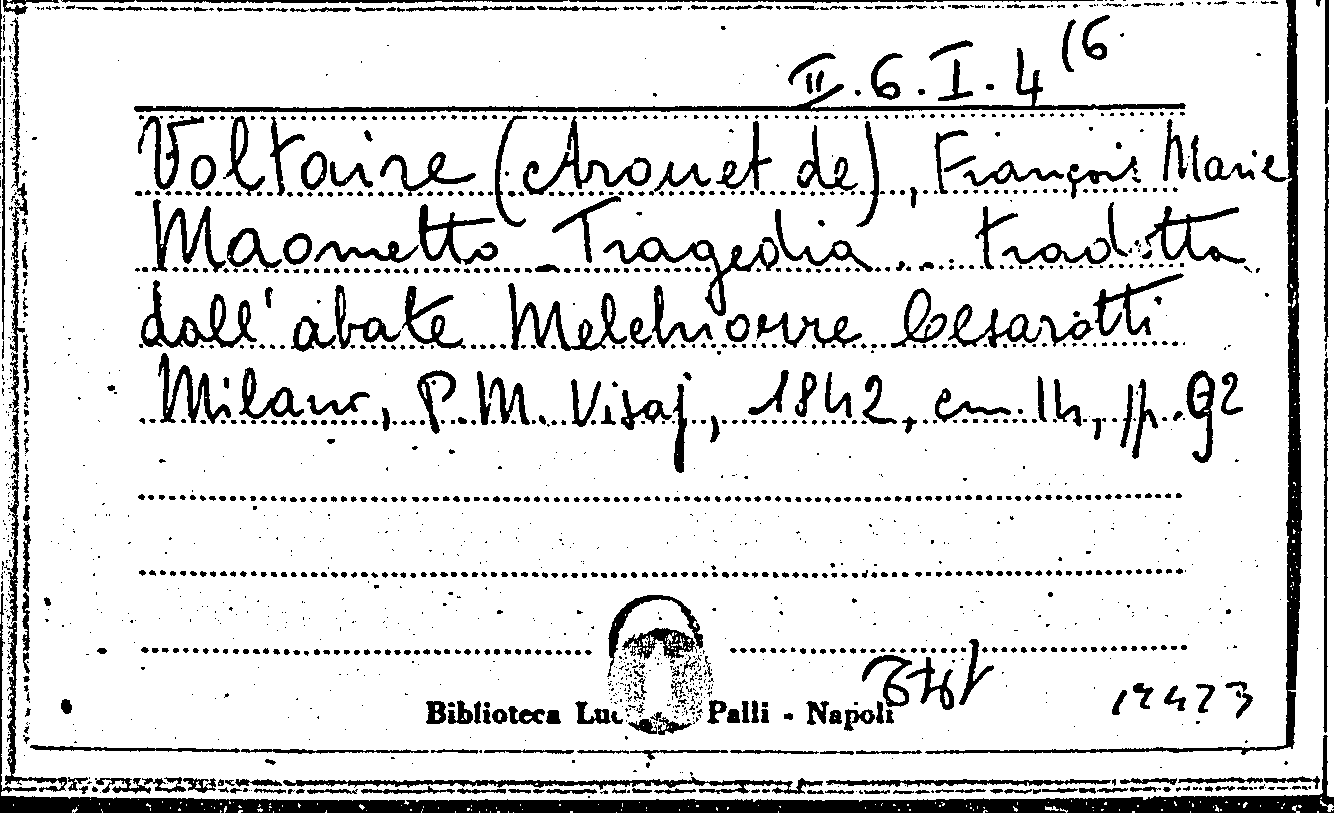 II.6.I.4(6
Voltaire (Arouet de), François Marie
Maometto - Tragedia... tradotta
dall'abate Melchiorre Cesarotti
Milano, P.M. Visaj, 1842, cm. 14, pp. 92
Biblioteca Palli - Napoli
12473